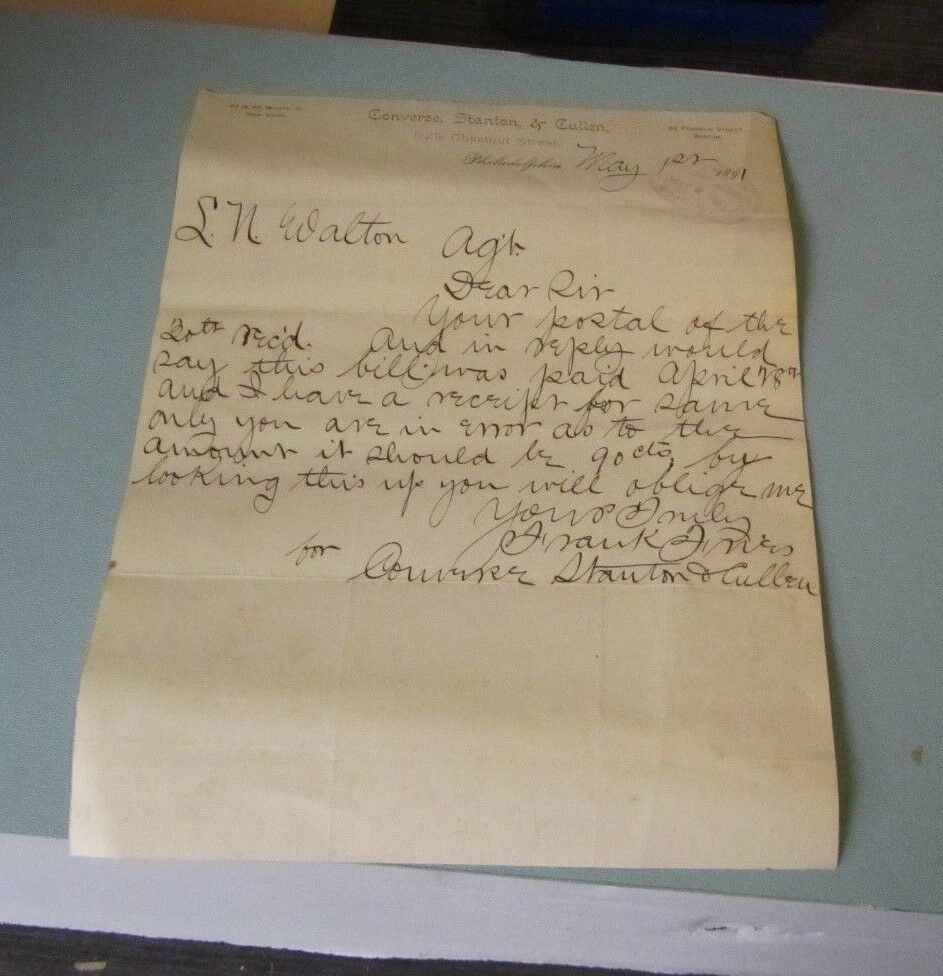 Converse, Stanton, & Cullen,
Chestnut Street.
New York.
Franklin Street,
Boston.
Philadelphia May 1st 1891
L. N. Walton Agt.
Dear Sir
Your postal of the
30th rec'd. And in reply would
say this bill was paid April
and I have a receipt for same
only you are in error as to the
amount it should be 90cts. by
looking this up you will oblige me
Yours Truly
Frank
for Converse Stanton & Cullen